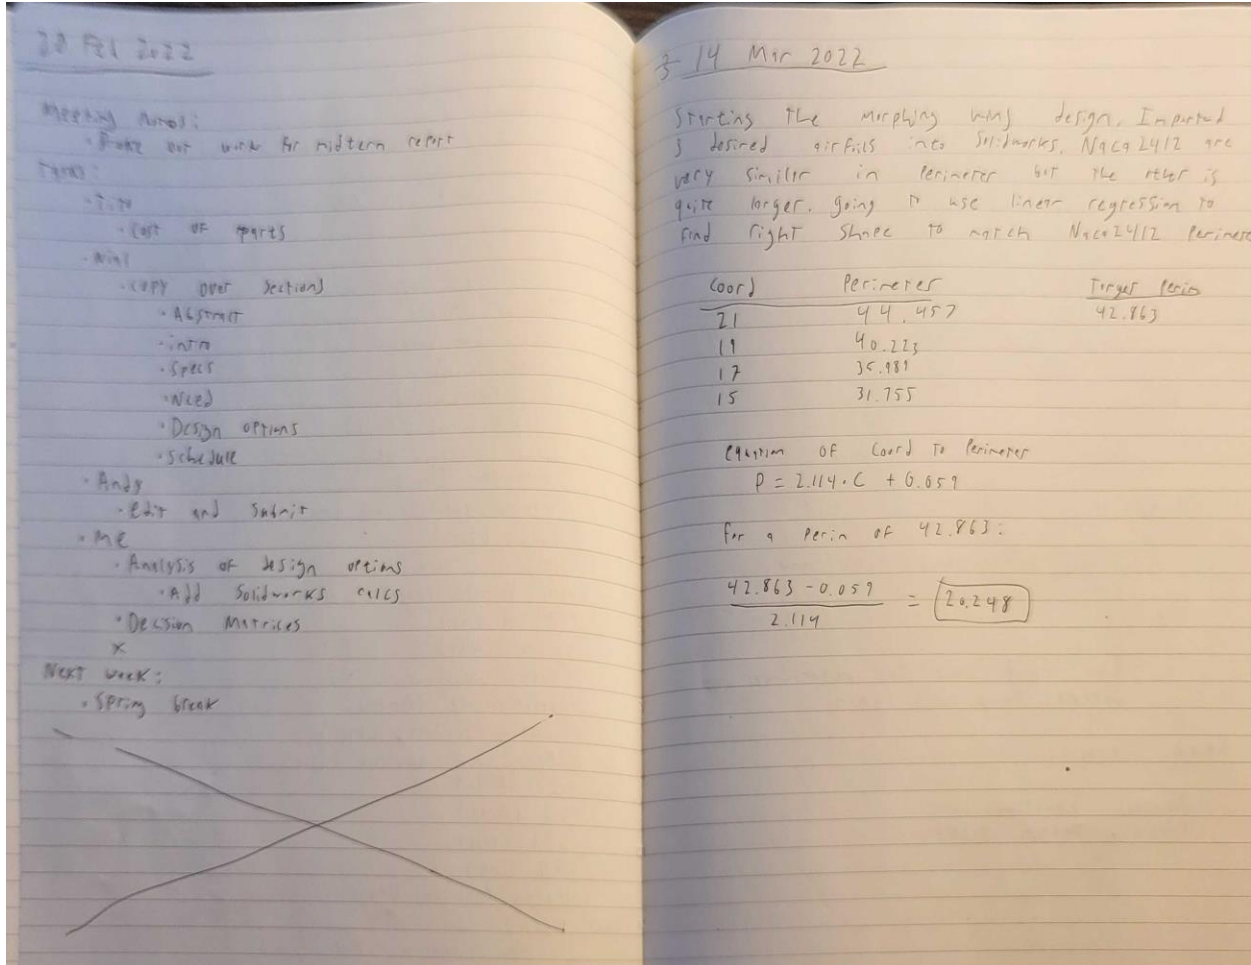 28 Feb 2022
Meeting Notes:
• Broke out work for midterm report
• Tito
• Cost of parts
• Nial
• Copy over Sections
• Abstract
• intro
• Specs
• Need
• Design options
• Schedule
• Andy
• Edit and Submit
• ME
• Analysis of design options
• Add Solidworks calcs
• Decision Matrices
x
Next week:
• Spring break
14 Mar 2022
Starting the morphing wing design. Imported
3 desired airfoils into Solidworks, Naca 2412 are
very similar in perimeter but the other is
quite larger. going to use linear regression to
find right shape to match Naca 2412 perimeter
Coord Perimeter Target Perim
21 44.457 42.863
19 40.223
17 35.989
15 31.755
equation of Coord to Perimeter
P = 2.114 · C + 0.059
for a perim of 42.863:
42.863 - 0.059
= 20.248
2.114